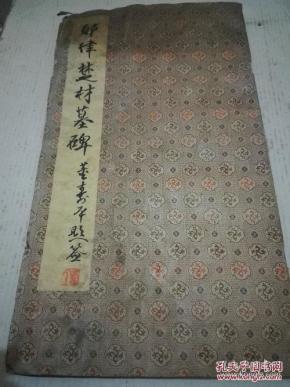 耶律楚材墓碑 董寿平题签
孔夫子旧书网